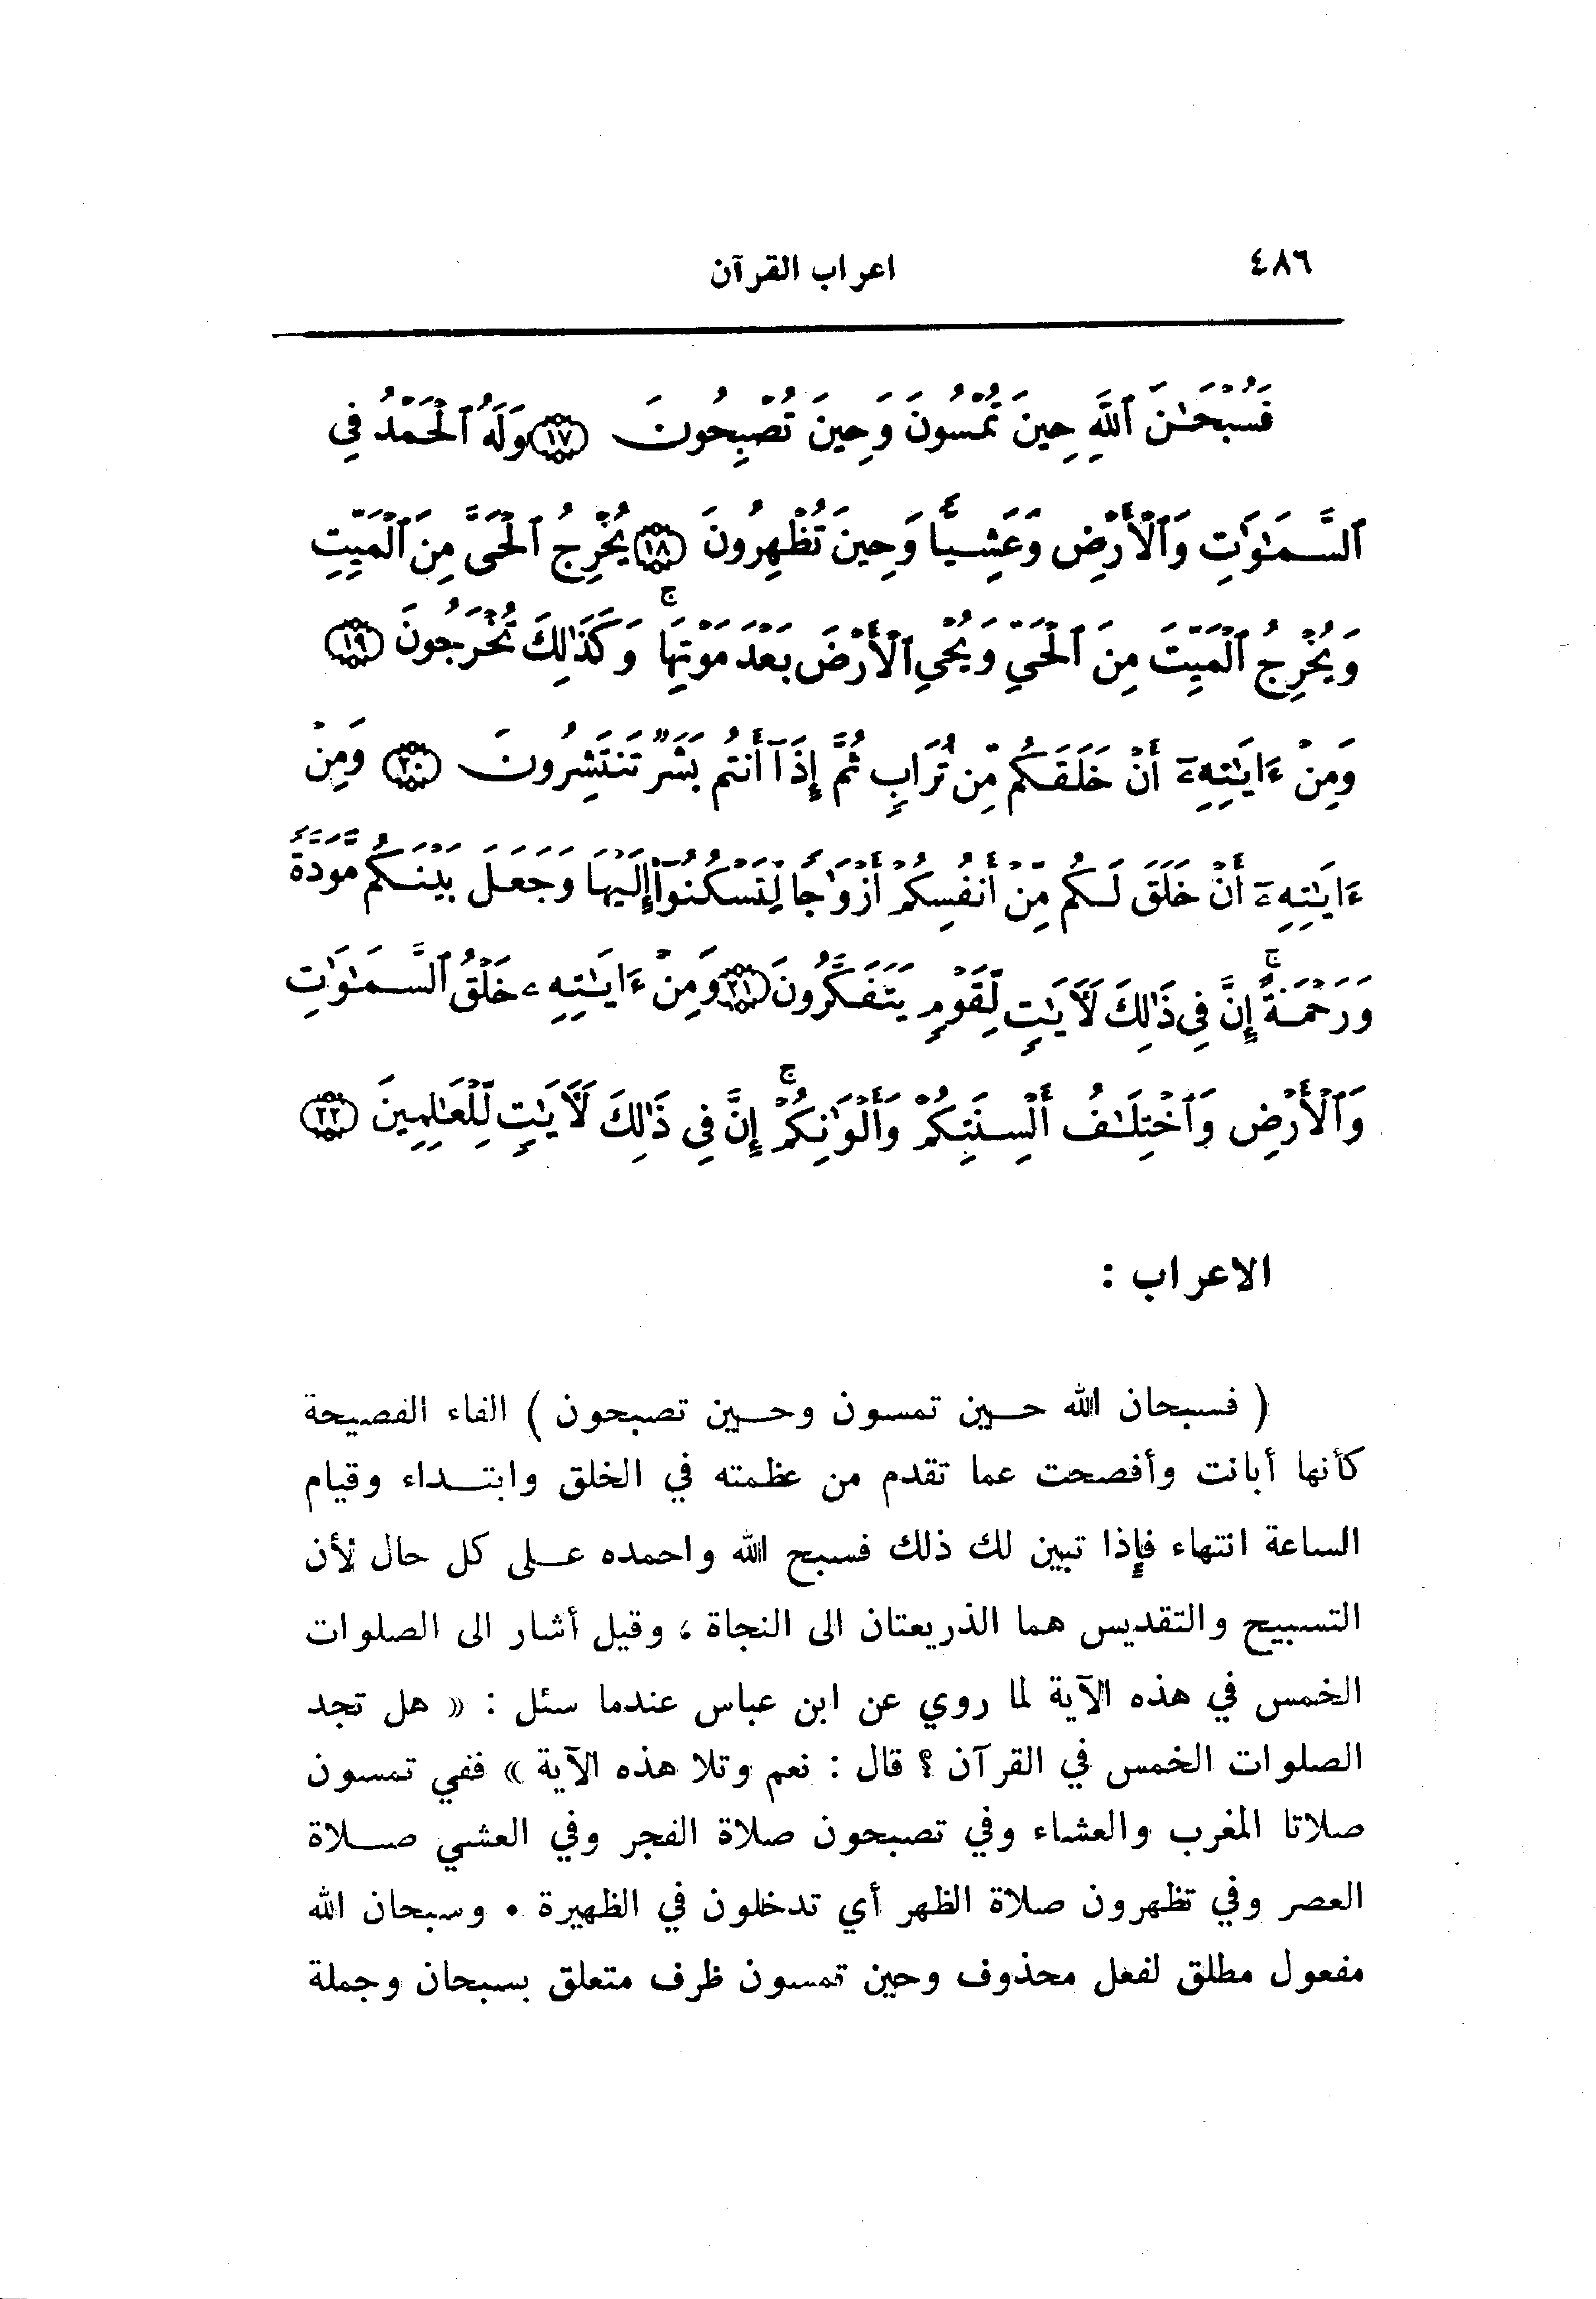 ٤٨٦
اعراب القرآن
فَسُبْحَٰنَ ٱللَّهِ حِينَ تُمْسُونَ وَحِينَ تُصْبِحُونَ ١٧ وَلَهُ ٱلْحَمْدُ فِى
ٱلسَّمَٰوَٰتِ وَٱلْأَرْضِ وَعَشِيًّا وَحِينَ تُظْهِرُونَ ١٨ يُخْرِجُ ٱلْحَىَّ مِنَ ٱلْمَيِّتِ
وَيُخْرِجُ ٱلْمَيِّتَ مِنَ ٱلْحَىِّ وَيُحْىِ ٱلْأَرْضَ بَعْدَ مَوْتِهَا ۚ وَكَذَٰلِكَ تُخْرَجُونَ ١٩
وَمِنْ ءَايَٰتِهِۦٓ أَنْ خَلَقَكُم مِّن تُرَابٍ ثُمَّ إِذَآ أَنتُم بَشَرٌ تَنتَشِرُونَ ٢٠ وَمِنْ
ءَايَٰتِهِۦٓ أَنْ خَلَقَ لَكُم مِّنْ أَنفُسِكُمْ أَزْوَٰجًا لِّتَسْكُنُوٓا۟ إِلَيْهَا وَجَعَلَ بَيْنَكُم مَّوَدَّةً
وَرَحْمَةً ۚ إِنَّ فِى ذَٰلِكَ لَأٓيَٰتٍ لِّقَوْمٍ يَتَفَكَّرُونَ ٢١ وَمِنْ ءَايَٰتِهِۦ خَلْقُ ٱلسَّمَٰوَٰتِ
وَٱلْأَرْضِ وَٱخْتِلَٰفُ أَلْسِنَتِكُمْ وَأَلْوَٰنِكُمْ ۚ إِنَّ فِى ذَٰلِكَ لَأٓيَٰتٍ لِّلْعَٰلِمِينَ ٢٢
الاعراب :
( فسبحان الله حين تمسون وحين تصبحون ) الفاء الفصيحة
كأنها أبانت وأفصحت عما تقدم من عظمته في الخلق وابتداء وقيام
الساعة انتهاء فإذا تبين لك ذلك فسبح الله واحمده على كل حال لأن
التسبيح والتقديس هما الذريعتان الى النجاة ، وقيل أشار الى الصلوات
الخمس في هذه الآية لما روي عن ابن عباس عندما سئل : « هل تجد
الصلوات الخمس في القرآن ؟ قال : نعم وتلا هذه الآية » ففي تمسون
صلاتا المغرب والعشاء وفي تصبحون صلاة الفجر وفي العشي صلاة
العصر وفي تظهرون صلاة الظهر أي تدخلون في الظهيرة . وسبحان الله
مفعول مطلق لفعل محذوف وحين تمسون ظرف متعلق بسبحان وجملة